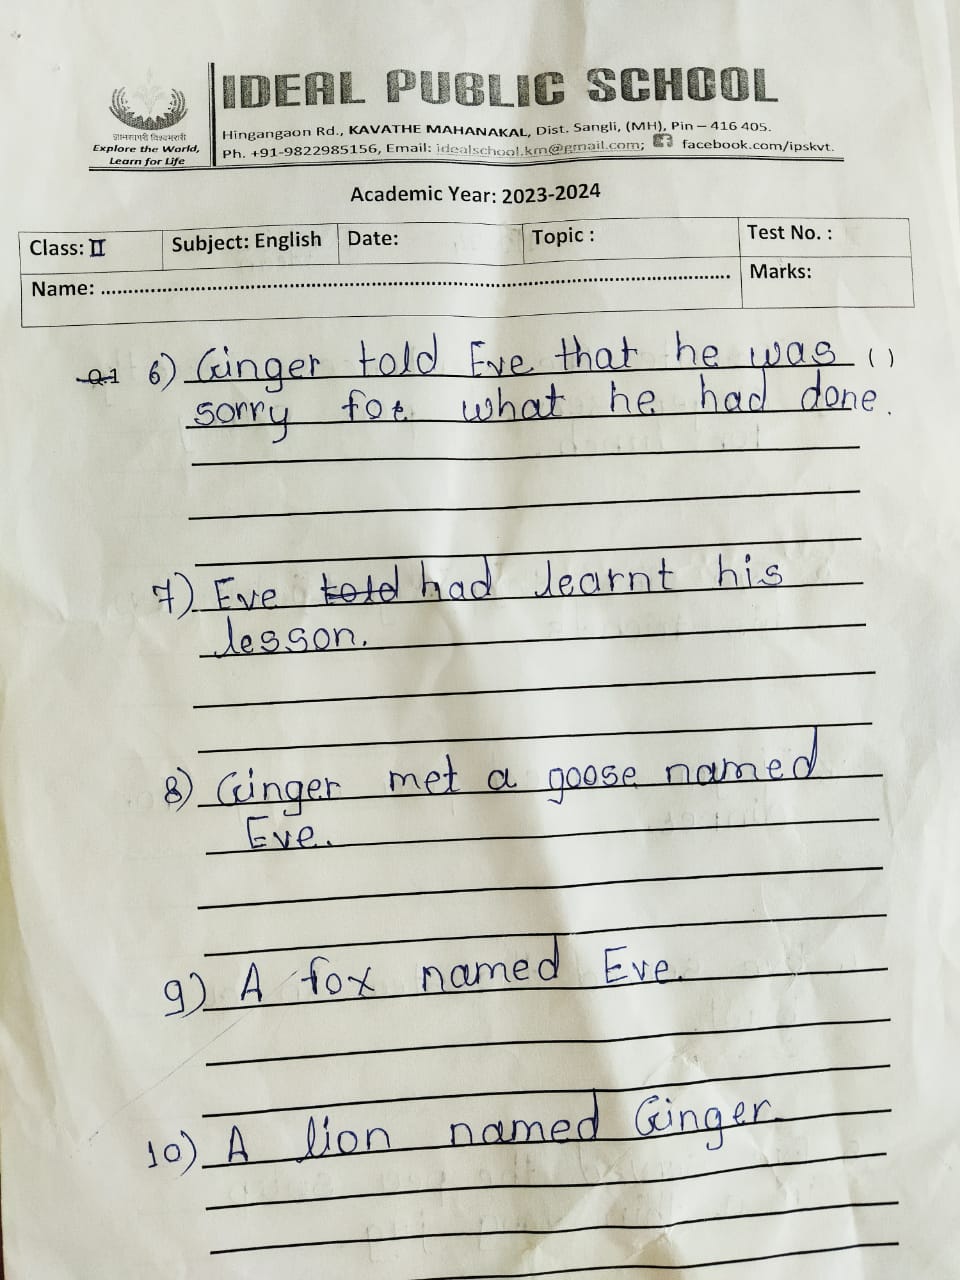 IDEAL PUBLIC SCHOOL
Hingangaon Rd., KAVATHE MAHANAKAL, Dist. Sangli, (MH), Pin – 416 405.
Ph. +91-9822985156, Email: idealschool.km@gmail.com; facebook.com/ipskvt.
Explore the World,
Learn for Life
Academic Year: 2023-2024
Class: II Subject: English Date: Topic : Test No. :
Name: Marks:
Q.1 6) Ginger told Eve that he was ( )
sorry for what he had done.
7) Eve told had learnt his
lesson.
8) Ginger met a goose named
Eve.
9) A fox named Eve.
10) A lion named Ginger.